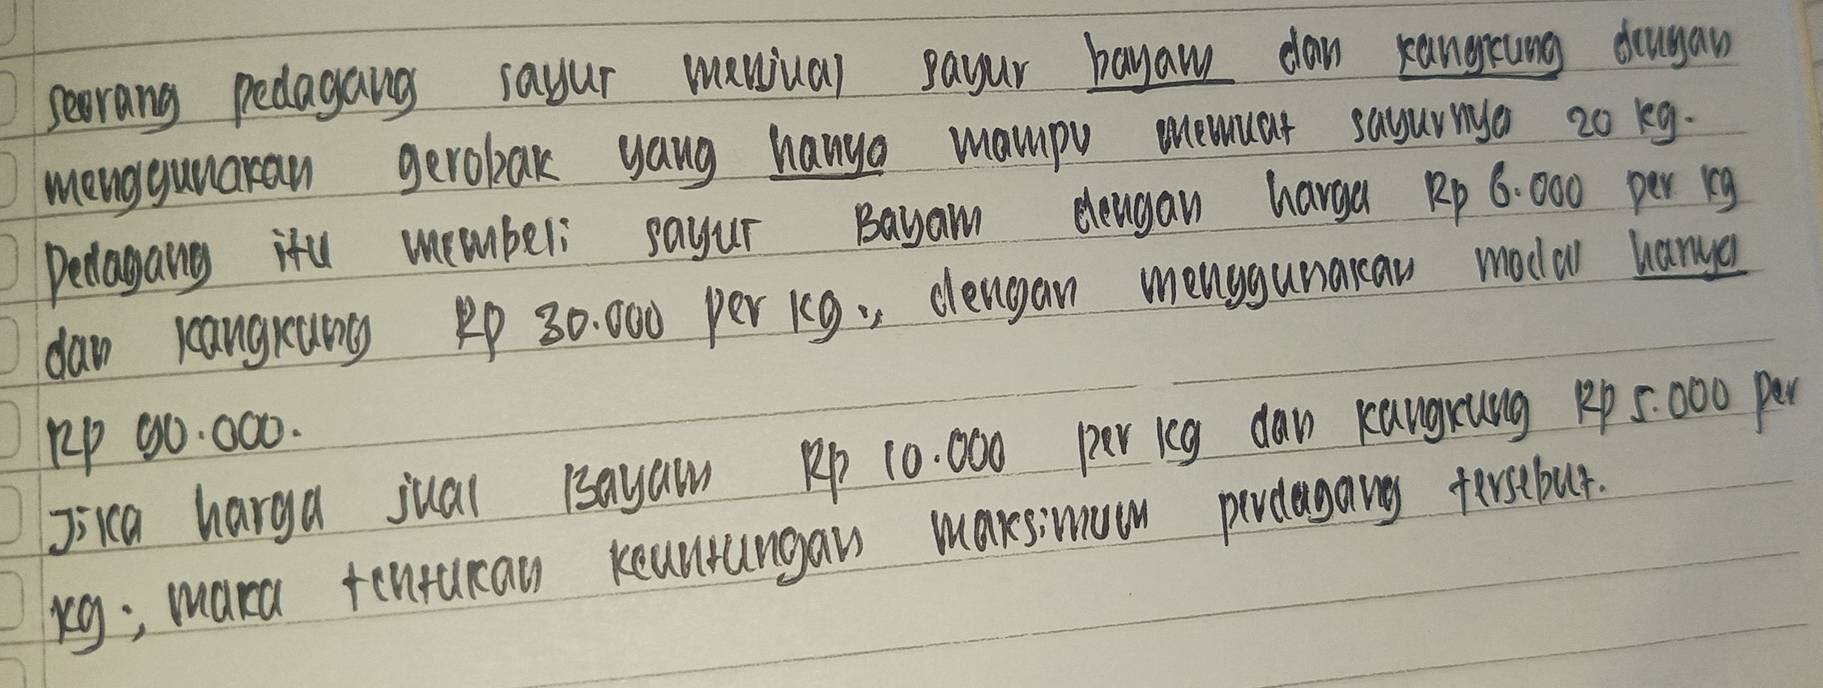 seorang pedagang sayur menjual sayur bayam dan kangkung dengan
menggunakan gerobak yang hanya mampu memuat sayurnya 20 kg.
Pedagang itu membeli sayur Bayam dengan harga Rp 6.000 per kg
dan kangkung Rp 30.000 per kg., dengan menggunakan modal hanya
Rp 90.000.
Jika harga jual Bayam Rp 10.000 per kg dan kangkung Rp 5.000 per
kg; maka tentukan keuntungan maksimum perdagang tersebut.